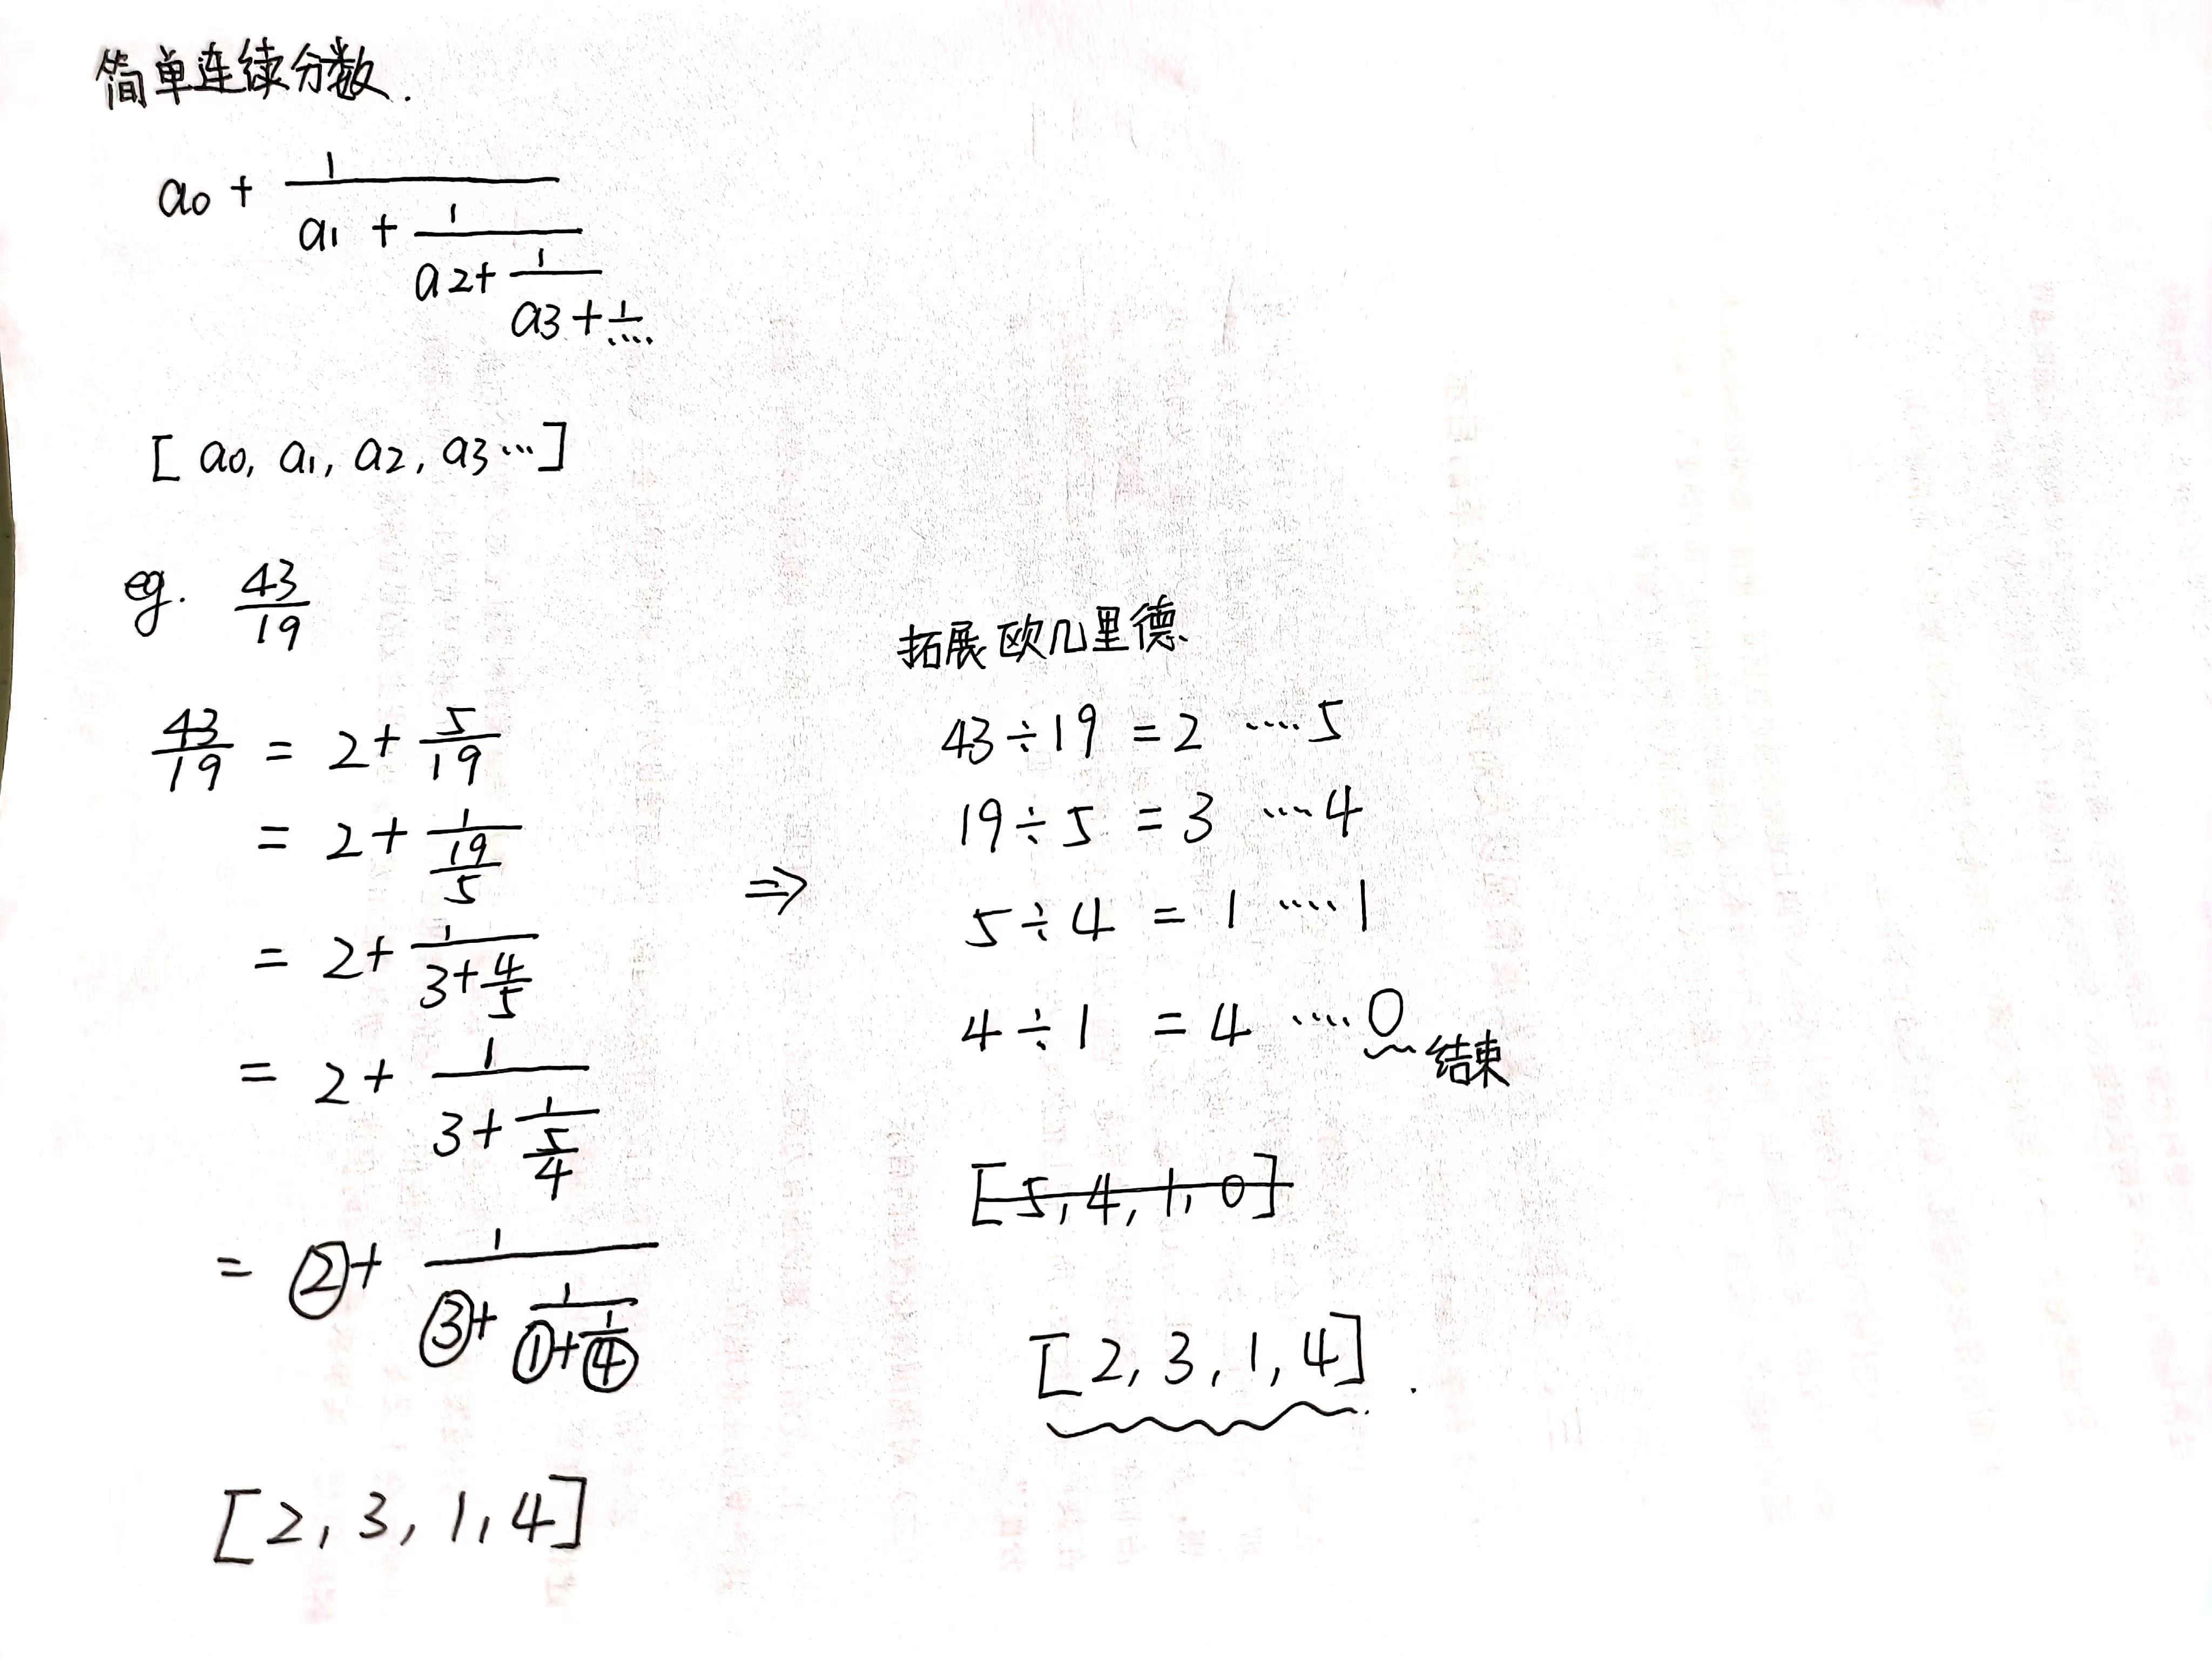 简单连续分数.
a0 + 1/(a1 + 1/(a2 + 1/(a3 + 1/....)))
[ a0, a1, a2, a3 ... ]
eg. 43/19
43/19 = 2 + 5/19
= 2 + 1/(19/5)
= 2 + 1/(3 + 4/5)
= 2 + 1/(3 + 1/(5/4))
= ② + 1/(③ + 1/(① + 1/④))
[2, 3, 1, 4]
⇒
拓展欧几里德
43 ÷ 19 = 2 ····5
19 ÷ 5 = 3 ····4
5 ÷ 4 = 1 ····1
4 ÷ 1 = 4 ····0 结束
[5, 4, 1, 0]
[2, 3, 1, 4] .